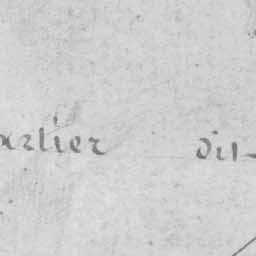 artier dit